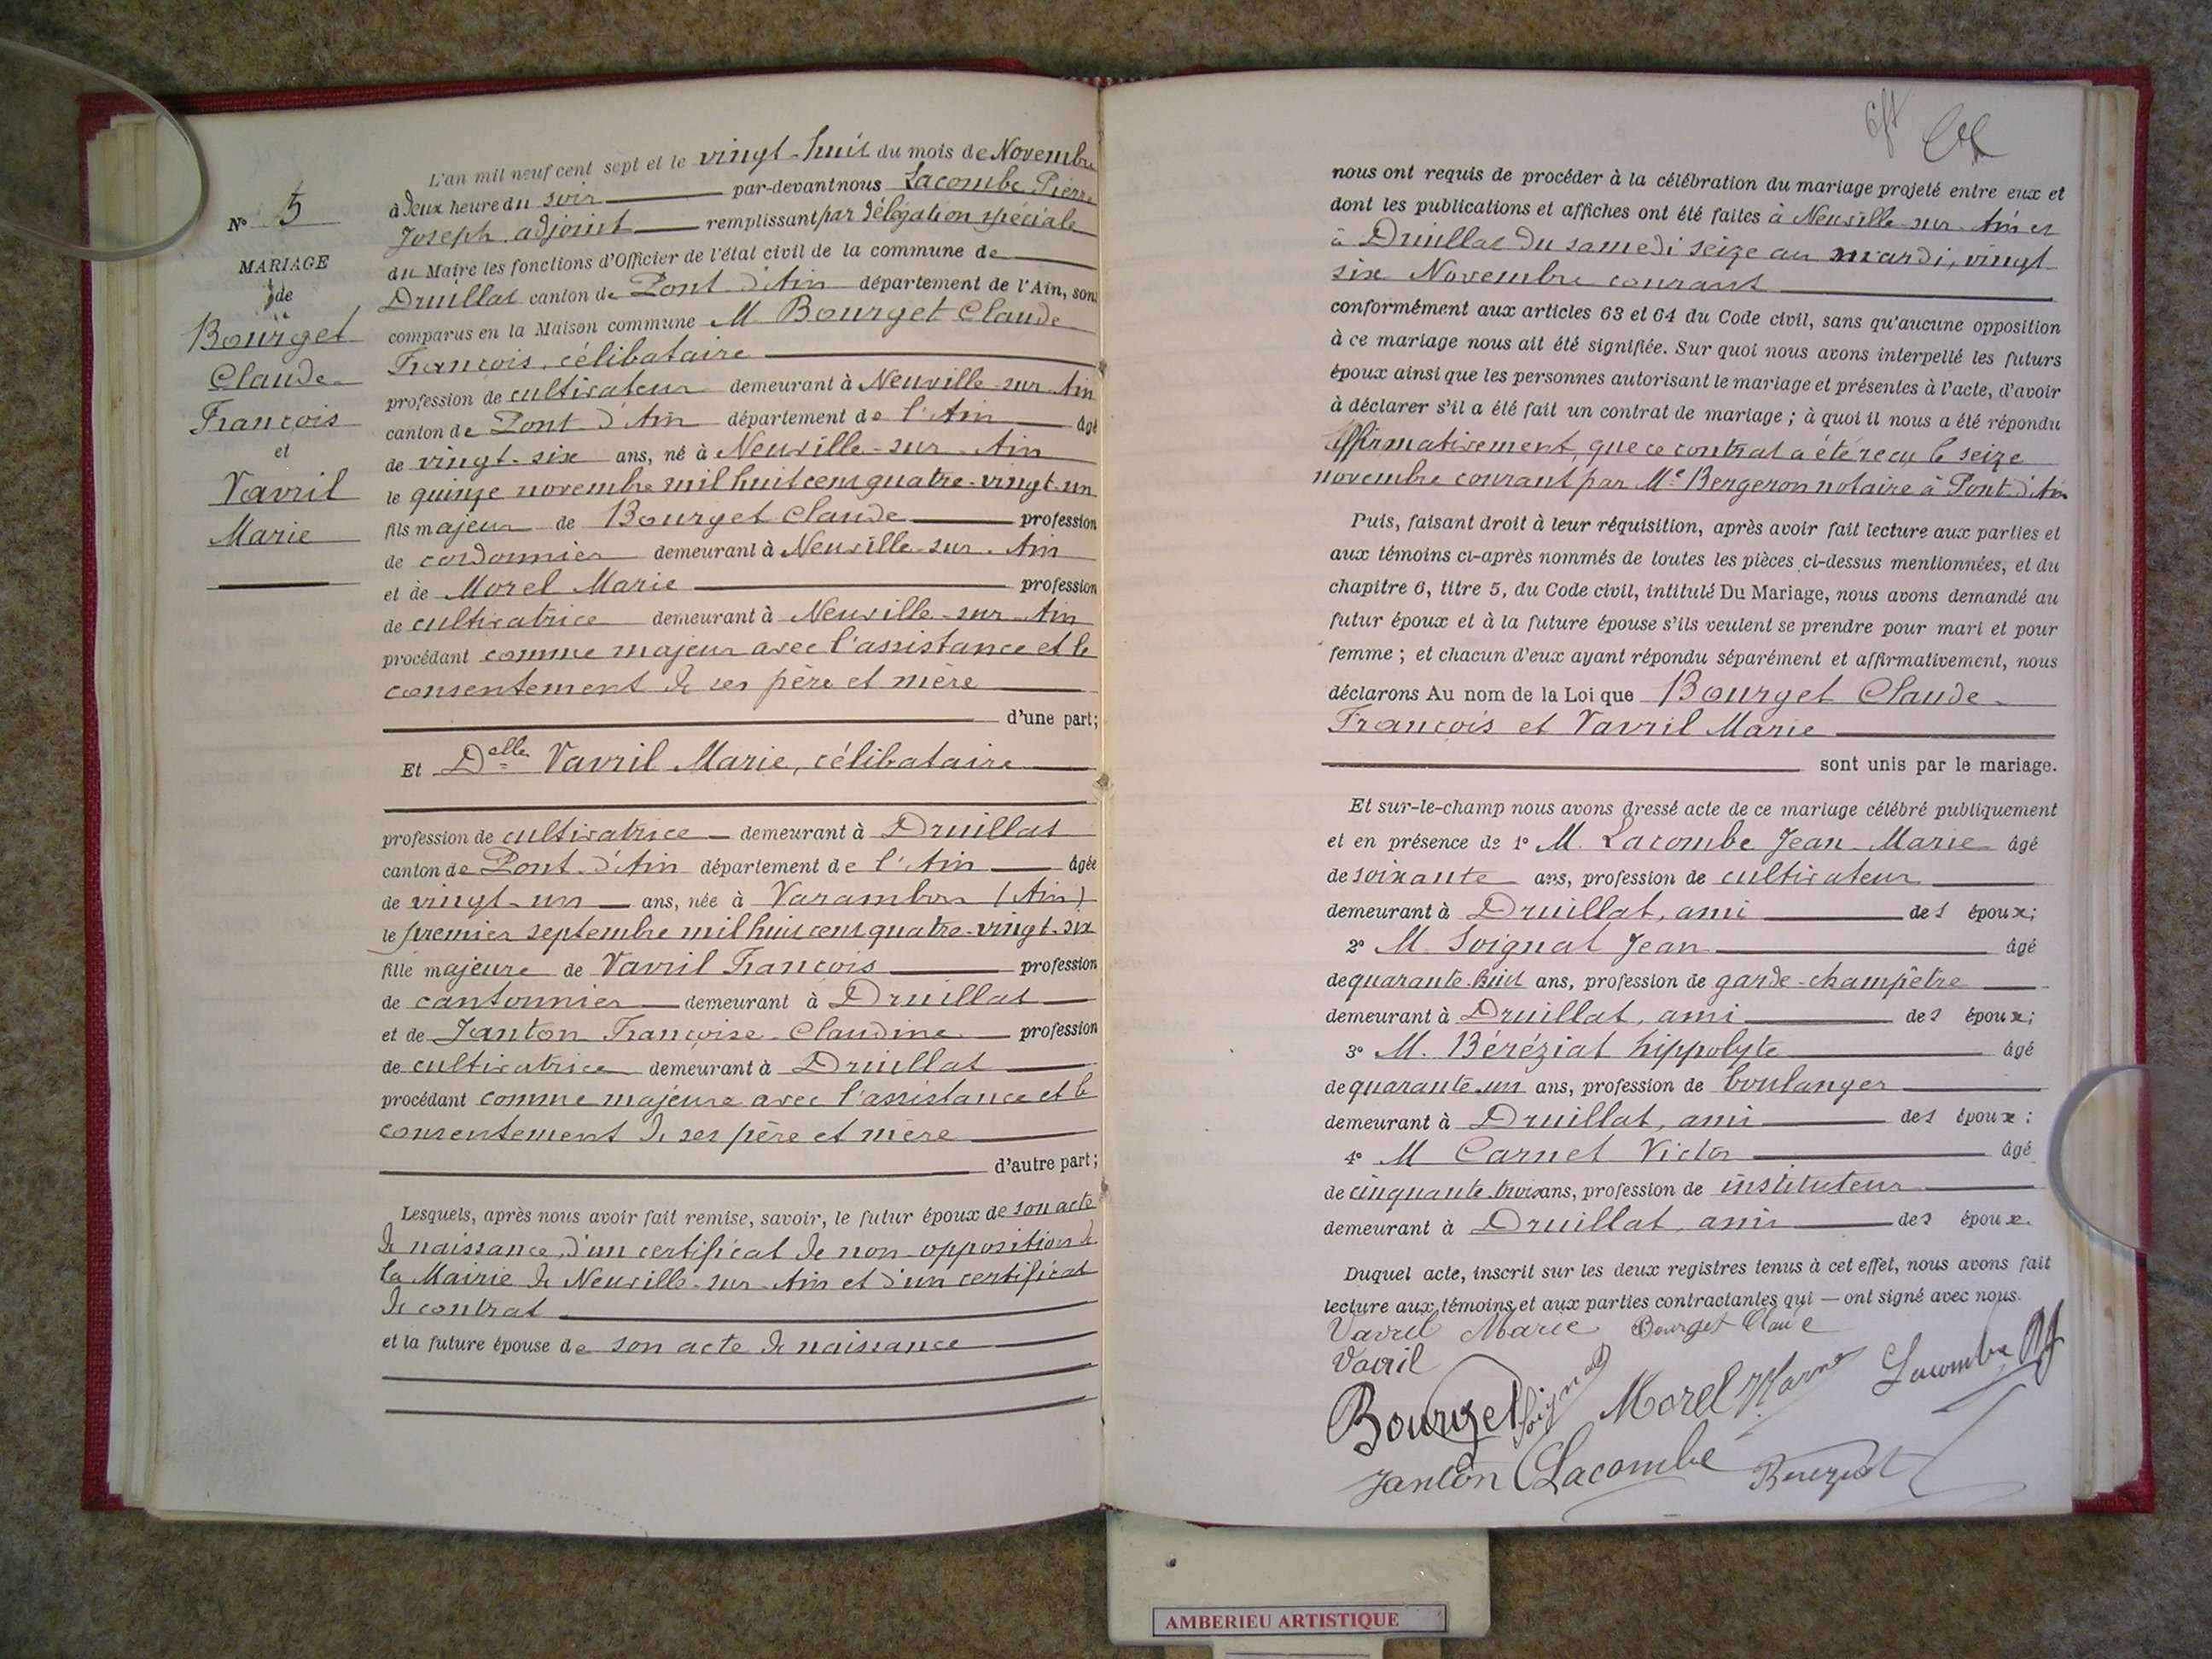 N° 5
MARIAGE
de
Bourget
Claude
François
et
Vavril
Marie
L'an mil neuf cent sept et le vingt-huit du mois de Novembre
à deux heure du soir par-devant nous Lacombe Pierre
Joseph adjoint remplissant par délégation spéciale
du Maire les fonctions d'Officier de l'état civil de la commune de
Druillat canton de Pont d'Ain département de l'Ain, sont
comparus en la Maison commune M Bourget Claude
François, célibataire
profession de cultivateur demeurant à Neuville-sur-Ain
canton de Pont d'Ain département de l'Ain âgé
de vingt-six ans, né à Neuville-sur-Ain
le quinze novembre mil huit cent quatre-vingt-un
fils majeur de Bourget Claude profession
de cordonnier demeurant à Neuville-sur-Ain
et de Morel Marie profession
de cultivatrice demeurant à Neuville-sur-Ain
procédant comme majeur avec l'assistance et le
consentement de ses père et mère
d'une part;
Et Delle Vavril Marie, célibataire
profession de cultivatrice demeurant à Druillat
canton de Pont-d'Ain département de l'Ain âgée
de vingt-un ans, née à Varambon (Ain)
le premier septembre mil huit cent quatre-vingt-six
fille majeure de Vavril François profession
de cantonnier demeurant à Druillat
et de Janton Françoise Claudine profession
de cultivatrice demeurant à Druillat
procédant comme majeure avec l'assistance et le
consentement de ses père et mère
d'autre part;
Lesquels, après nous avoir fait remise, savoir, le futur époux de son acte
de naissance, d'un certificat de non-opposition de
la Mairie de Neuville-sur-Ain et d'un certificat
de contrat
et la future épouse de son acte de naissance
nous ont requis de procéder à la célébration du mariage projeté entre eux et
dont les publications et affiches ont été faites à Neuville-sur-Ain et
à Druillat du samedi seize au mardi, vingt
six Novembre courant
conformément aux articles 63 et 64 du Code civil, sans qu'aucune opposition
à ce mariage nous ait été signifiée. Sur quoi nous avons interpellé les futurs
époux ainsi que les personnes autorisant le mariage et présentes à l'acte, d'avoir
à déclarer s'il a été fait un contrat de mariage; à quoi il nous a été répondu
affirmativement, que ce contrat a été reçu le seize
novembre courant par Me Bergeron notaire à Pont d'Ain
Puis, faisant droit à leur réquisition, après avoir fait lecture aux parties et
aux témoins ci-après nommés de toutes les pièces ci-dessus mentionnées, et du
chapitre 6, titre 5, du Code civil, intitulé Du Mariage, nous avons demandé au
futur époux et à la future épouse s'ils veulent se prendre pour mari et pour
femme; et chacun d'eux ayant répondu séparément et affirmativement, nous
déclarons Au nom de la Loi que Bourget Claude
François et Vavril Marie
sont unis par le mariage.
Et sur-le-champ nous avons dressé acte de ce mariage célébré publiquement
et en présence de 1° M. Lacombe Jean Marie âgé
de soixante ans, profession de cultivateur
demeurant à Druillat, ami des époux;
2° M. Soignat Jean âgé
de quarante-huit ans, profession de garde-champêtre
demeurant à Druillat, ami des époux;
3° M. Béréziat hippolyte âgé
de quarante-un ans, profession de boulanger
demeurant à Druillat, ami des époux:
4° M Carnet Victor âgé
de cinquante-trois ans, profession de instituteur
demeurant à Druillat, ami des époux.
Duquel acte, inscrit sur les deux registres tenus à cet effet, nous avons fait
lecture aux témoins et aux parties contractantes qui — ont signé avec nous.
Vavril Marie Bourget Claude
Vavril
Bourget Soignat Morel Marie Lacombe
Janton Lacombe Bereziat
AMBERIEU ARTISTIQUE